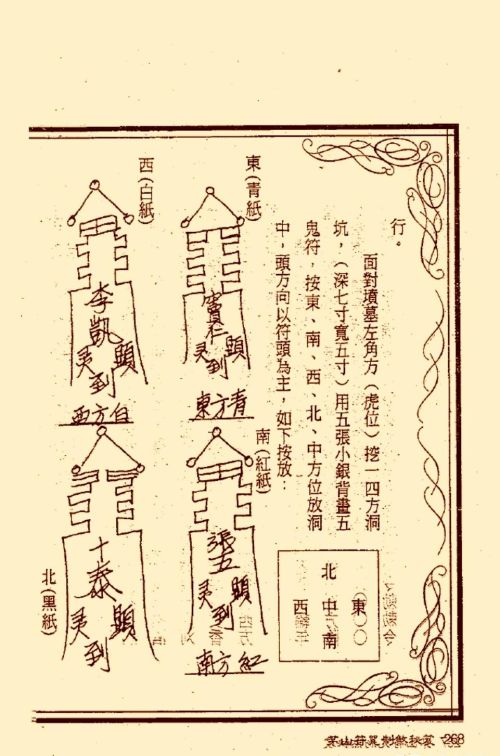 行。
面對墳墓左角方（虎位）挖一四方洞
坑，（深七寸寬五寸）用五張小銀背畫五
鬼符，按東、南、西、北、中方位放洞
中，頭方向以符頭為主，如下按放：
（東）
北 中 南
西
東（青紙）
仁
顯灵到
東方青
南（紅紙）
張五
顯灵到
南方紅
西（白紙）
李凱
顯灵到
西方白
北（黑紙）
十泰
顯灵到
268